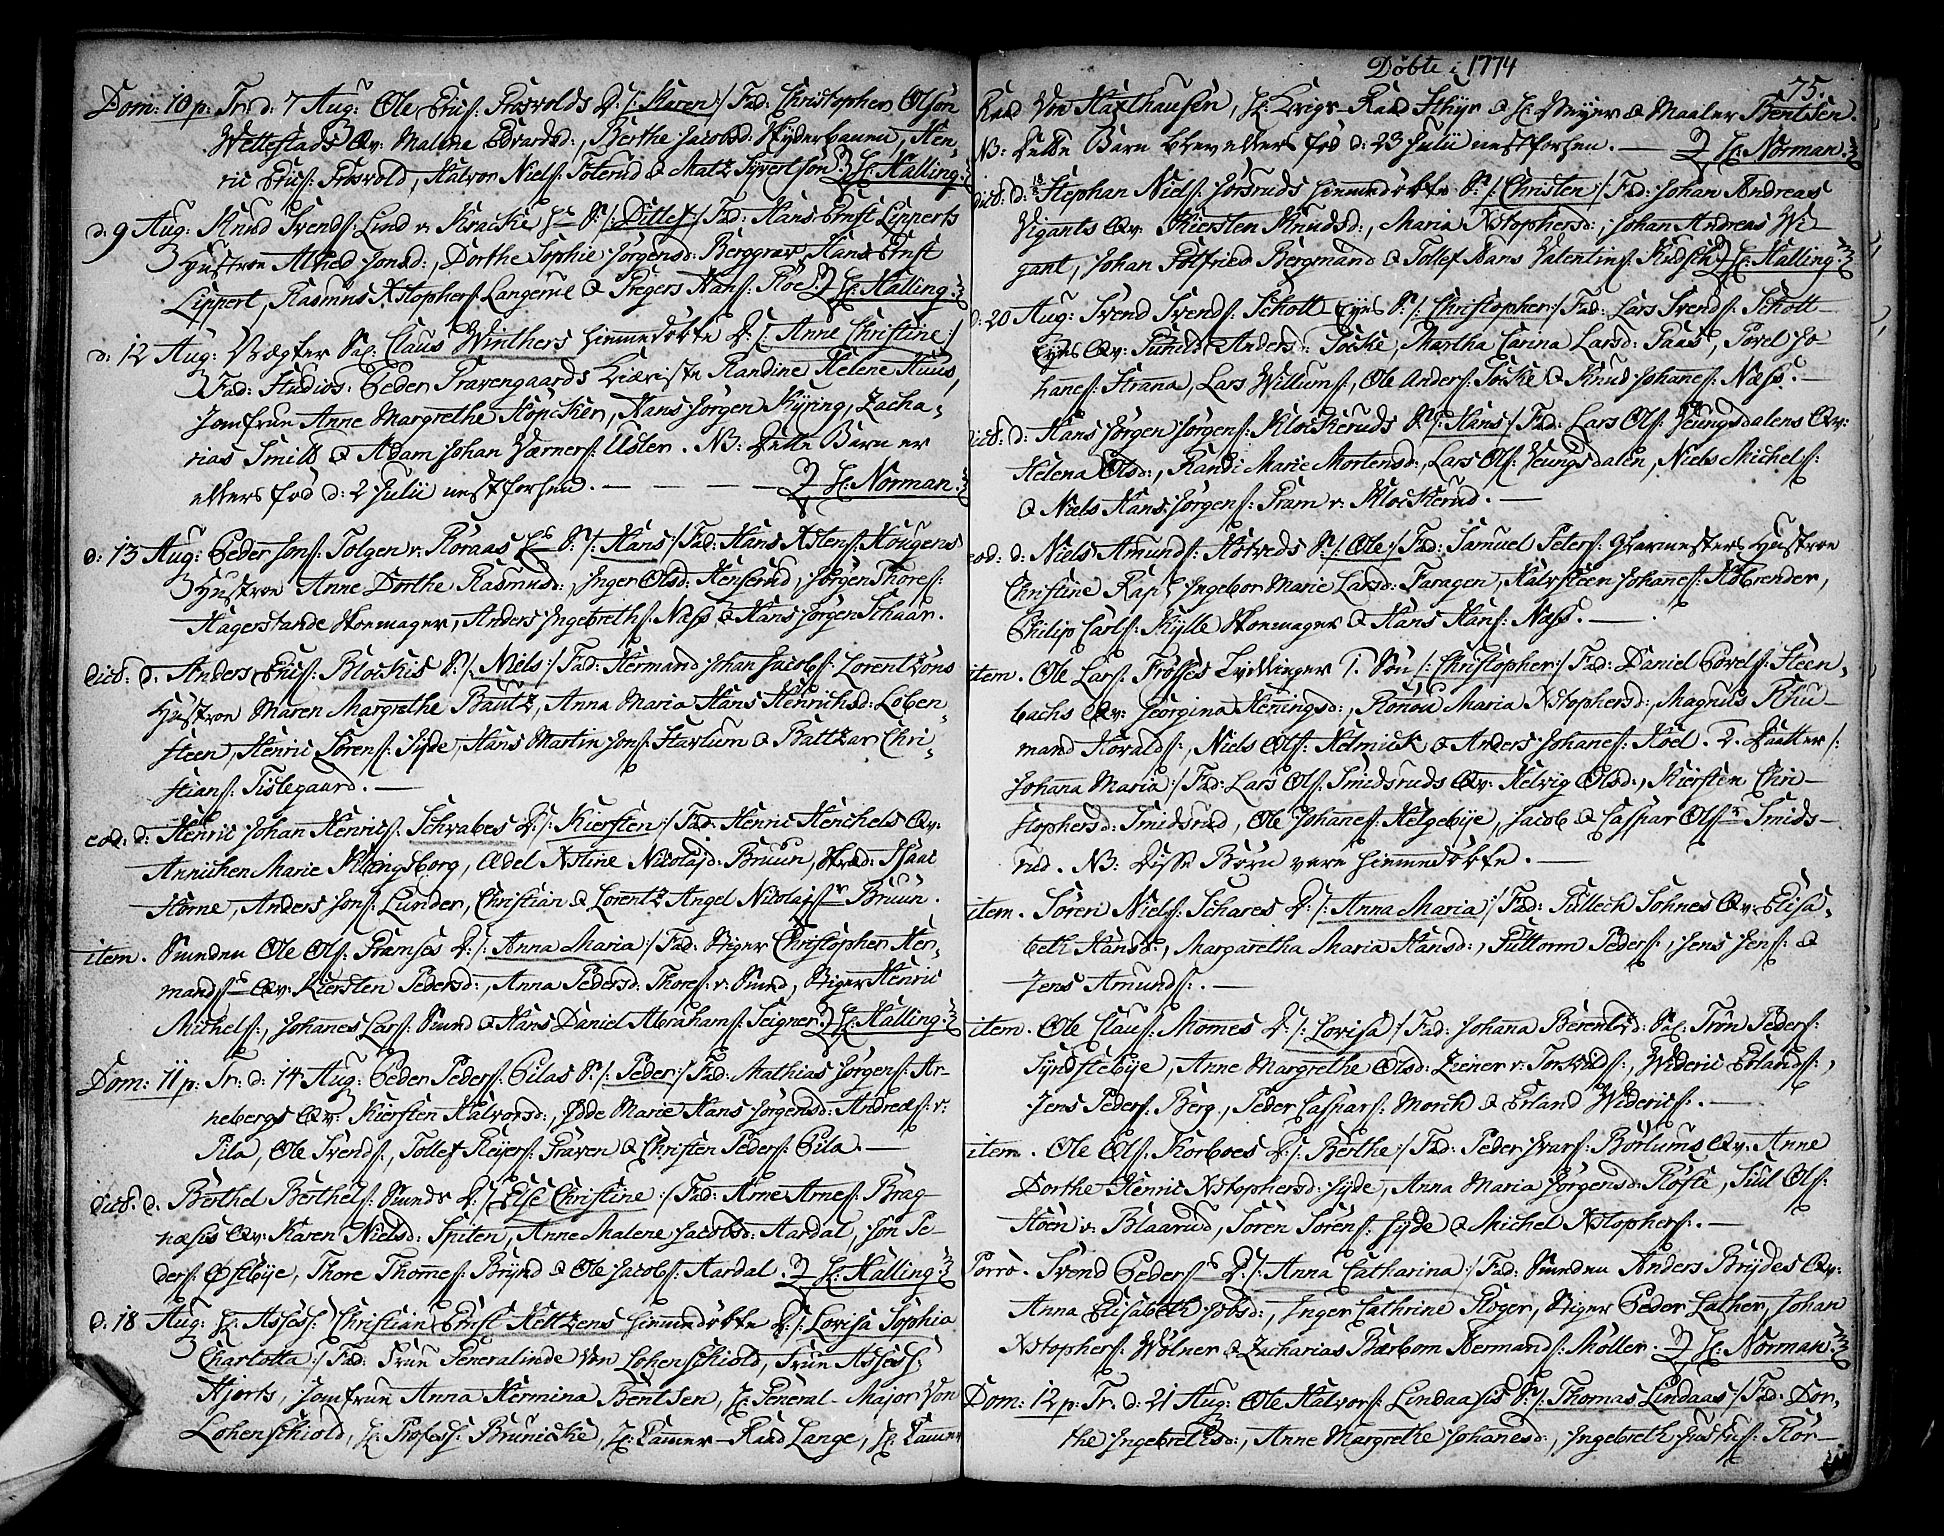 Dom: 10 p: Tr: d: 7 Aug: Ole Eriks: Frosvolds D: /: Karen :/ Fad: Christopher Olsøn
Wettestads Qv: Malene Edvardsd:, Berthe Jacobsd: Hen-
ric Erics: Frosvold, Halvor Niels: Foterud & Matz Syvertsøn. H: Halling.
d: 9 Aug: Knud Svends: Lund v: Kracke S: /: Ditlef :/ Fad: Hans Ernst Lipperts
Hustroe Alhed Jonsd:, Dorthe Sophie Jørgensd: Berggrav, Hans Ernst
Lippert, Rasmus Xstophers: Langerue & Gregers Hans: Roe. H: Halling.
d: 12 Aug: Vægter Sal: Claus Winthers hiemmedøbte D: /: Anne Christine :/
Fad: Studios: Peder Gravengaards Kiæreste Randine Helene Ruus,
Jomfrue Anne Margrethe Høpcker, Hans Jørgen Kyring, Zacha-
rias Smitt & Adam Johan Værners: Usler. NB: Dette Barn er
ellers fød d: 2 Julii nestforhen. — — — H: Norman.
d: 13 Aug: Peder Jons: Tolgen v: Røraas S: /: Hans :/ Fad: Hans Xstens: Hougens
Hustroe Anne Dorthe Rasmusd:, Inger Olsd: Henserud, Jørgen Thores:
Hagerstande Skoemager, Anders Ingebreths: Næss & Hans Jørgen Schaar.
dict: d: Anders Eriks: Blockus S: /: Niels :/ Fad: Hermand Johan Jacobs: Lorentzøns
Hustroe Maren Margrethe Bautz, Anna Maria Hans Henrichsd: Loben-
steen, Henric Sørens: Syde, Hans Martin Jons: Harlum & Baltzar Chri-
stians: Tislegaard. —
eod: d: Henric Johan Henrics: Schvabes D: /: Kiersten :/ Fad: Henric Henchels Qv:
Annichen Marie Klingsborg, Adel Xstine Nicolajd: Bruun, Isaac
Horne, Anders Jons: Lunder, Christian & Lorentz Angel Nicolajs: Bruun.
item. Ole Ols: Bremses D: /: Anna Maria :/ Fad: Christopher Her-
mands: Qv: Kiersten Pedersd:, Anna Pedersd: Thores: v: Henric
Michels:, Johanes Lars: & Hans Daniel Abrahams: Seigner. H: Halling.
Dom: 11 p: Tr: d: 14 Aug: Peder Peders: Pilas S: /: Peder :/ Fad: Mathias Jørgens: Ar-
nebergs Qv: Kiersten Halvorsd:, Marie Hans Jørgensd: Andreæs: v:
Pila, Ole Svends:, Tollef Reyers: Graven & Christen Peders: Pila. —
dict: d: Berthel Berthels: D: /: Else Christine :/ Fad: Arne Arnes: Brag-
næsis Qv: Karen Nielsd: Spiten, Anne Malene Jacobsd: Aardal, Jon Pe-
ders: Øfsbye, Thore Thomes: Brynd & Ole Jacobs: Aardal. H: Halling.
d: 18 Aug: H: Assess: Christian Ernst Heltzens hiemmedøbte D: /: Lovisa Sophia
Charlotta :/ Fad: Frue Generalinde von Lohenschiold, Frue Assess:
Hjorts, Jomfrue Anna Hermina Bentsen, H: General-Major von
Lohenschiold, H: Profess: Brunicke, H: Cammer-Raad Lange, H: Cammer
Døbte i 1774
75.
Raad von Haxthausen, H: Krigs Raad Styr & H: Meyer & Maaler Bentsen.
NB: Dette Barn blev ellers fød d: 23 Julii nestforhen. — H: Norman.
dict: d: Stephan Niels: Jørsruds hiemmedøbte S: /: Christen :/ Fad: Johan Andreas
Vigants Qv: Kiersten Knudsd:, Maria Xstophersd:, Johan Andreas Wi-
gant, Johan Gotfried Bergmand & Tollef Hans Valentins: Kudsch. H: Halling.
d: 20 Aug: Svend Svends: Schott Eyes S: /: Christopher :/ Fad: Lars Svends: Schott-
Eyes Qv: Gunild Andersd: Socke, Martha Carina Larsd: Paas, Povel Jo-
hanes: Strana, Lars Willums:, Ole Anders: Socke & Knud Johanes: Næss. —
dict: d: Hans Jørgen Jørgens: Klockeruds S: /: Hans :/ Fad: Lars Ols: Yeungsdalens Qv:
Helena Olsd:, Randi Marie Mortensd:, Lars Ols: Yeungsdalen, Niels Michels:
& Niels Hans Jørgens: Fram v: Klockerud. —
eod: d: Niels Amunds: Hotveds S: /: Ole :/ Fad: Samuel Peters: Glarmesters Hustroe
Christine Rap:, Ingebor Marie Larsd: Faragen, Halvsteen Johanes: Kølbrender,
Philip Carls: Kylle Skoemager & Hans Hans: Næss. —
item. Ole Lars: Frøsses Tvillinger 1. Søn /: Christopher :/ Fad: Daniel Povels: Steen-
bachs Qv: Georgina Heningsd:, Ronou Maria Xstophersd:, Magnus Rhu-
mand Haralds:, Niels Ols: Helmick & Anders Johanes: Koel. 2. Daatter /:
Johana Maria :/ Fad: Lars Ols: Smidsruds Qv: Helvig Olsd:, Kiersten Chri-
stophersd: Smidsrud, Ole Johanes: Helgebye, Jacob & Caspar Ols: Smids-
rud. NB: Disse Børn vare hiemmedøbte. —
item. Søren Niels: Schares D: /: Anna Maria :/ Fad: Gulleck Johnes Qv: Elisa-
beth Hansd:, Margaretha Maria Hansd:, Guttorm Peders:, Jens Jens: &
Jens Amunds: —
item. Ole Claus: Momes D: /: Lovisa :/ Fad: Johana Berentzd: Sal: Tron Peders:
Syndstebye, Anne Margrethe Olsd: Ziener v: Torstvids:, Wideric Erlands:,
Jens Peders: Berg, Peder Caspars: Morch & Erland Widerics: —
item. Ole Ols: Korboes D: /: Berthe :/ Fad: Peder Ivars: Børlums Qv: Anne
Dorthe Henric Xstophersd: Syde, Anna Maria Jørgensd: Røste, Juul Ols:
Høen v: Blaarud, Søren Sørens: Syde & Michel Xstophers: —
Porro. Svend Peders: D: /: Anna Catharina :/ Fad: Anders Brydes Qv:
Anna Elisabeth Jobsd:, Inger Cathrine Roger, Peder Lather, Johan
Xstophers: Wølner & Zacharias Bærbom Hermands: Møller. H: Norman.
Dom: 12 p: Tr: d: 21 Aug: Ole Halvors: Lindaasis S: /: Thomas Lindaas :/ Fad: Dor-
the Ingebretsd:, Anne Margrethe Johanesd:, Ingebreth Justus: Kør-